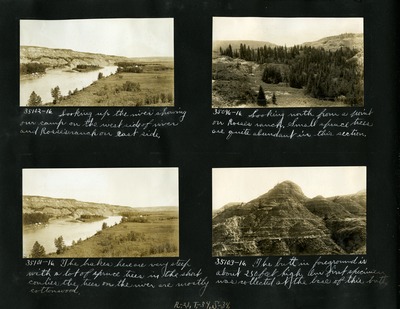 35102-16 Looking up the river showing
our camp on the west side of river
and Rosse's ranch on east side.
35096-16 Looking north from a point
on Rosse's ranch, small spruce trees
are quite abundant in this section.
35101-16 The brakes here are very steep
with a lot of spruce trees in the short
coulies, the trees on the river are mostly
cottonwood.
35103-16 The butte in foreground is
about 250 feet high. Our first specimen
was collected at the base of this butte